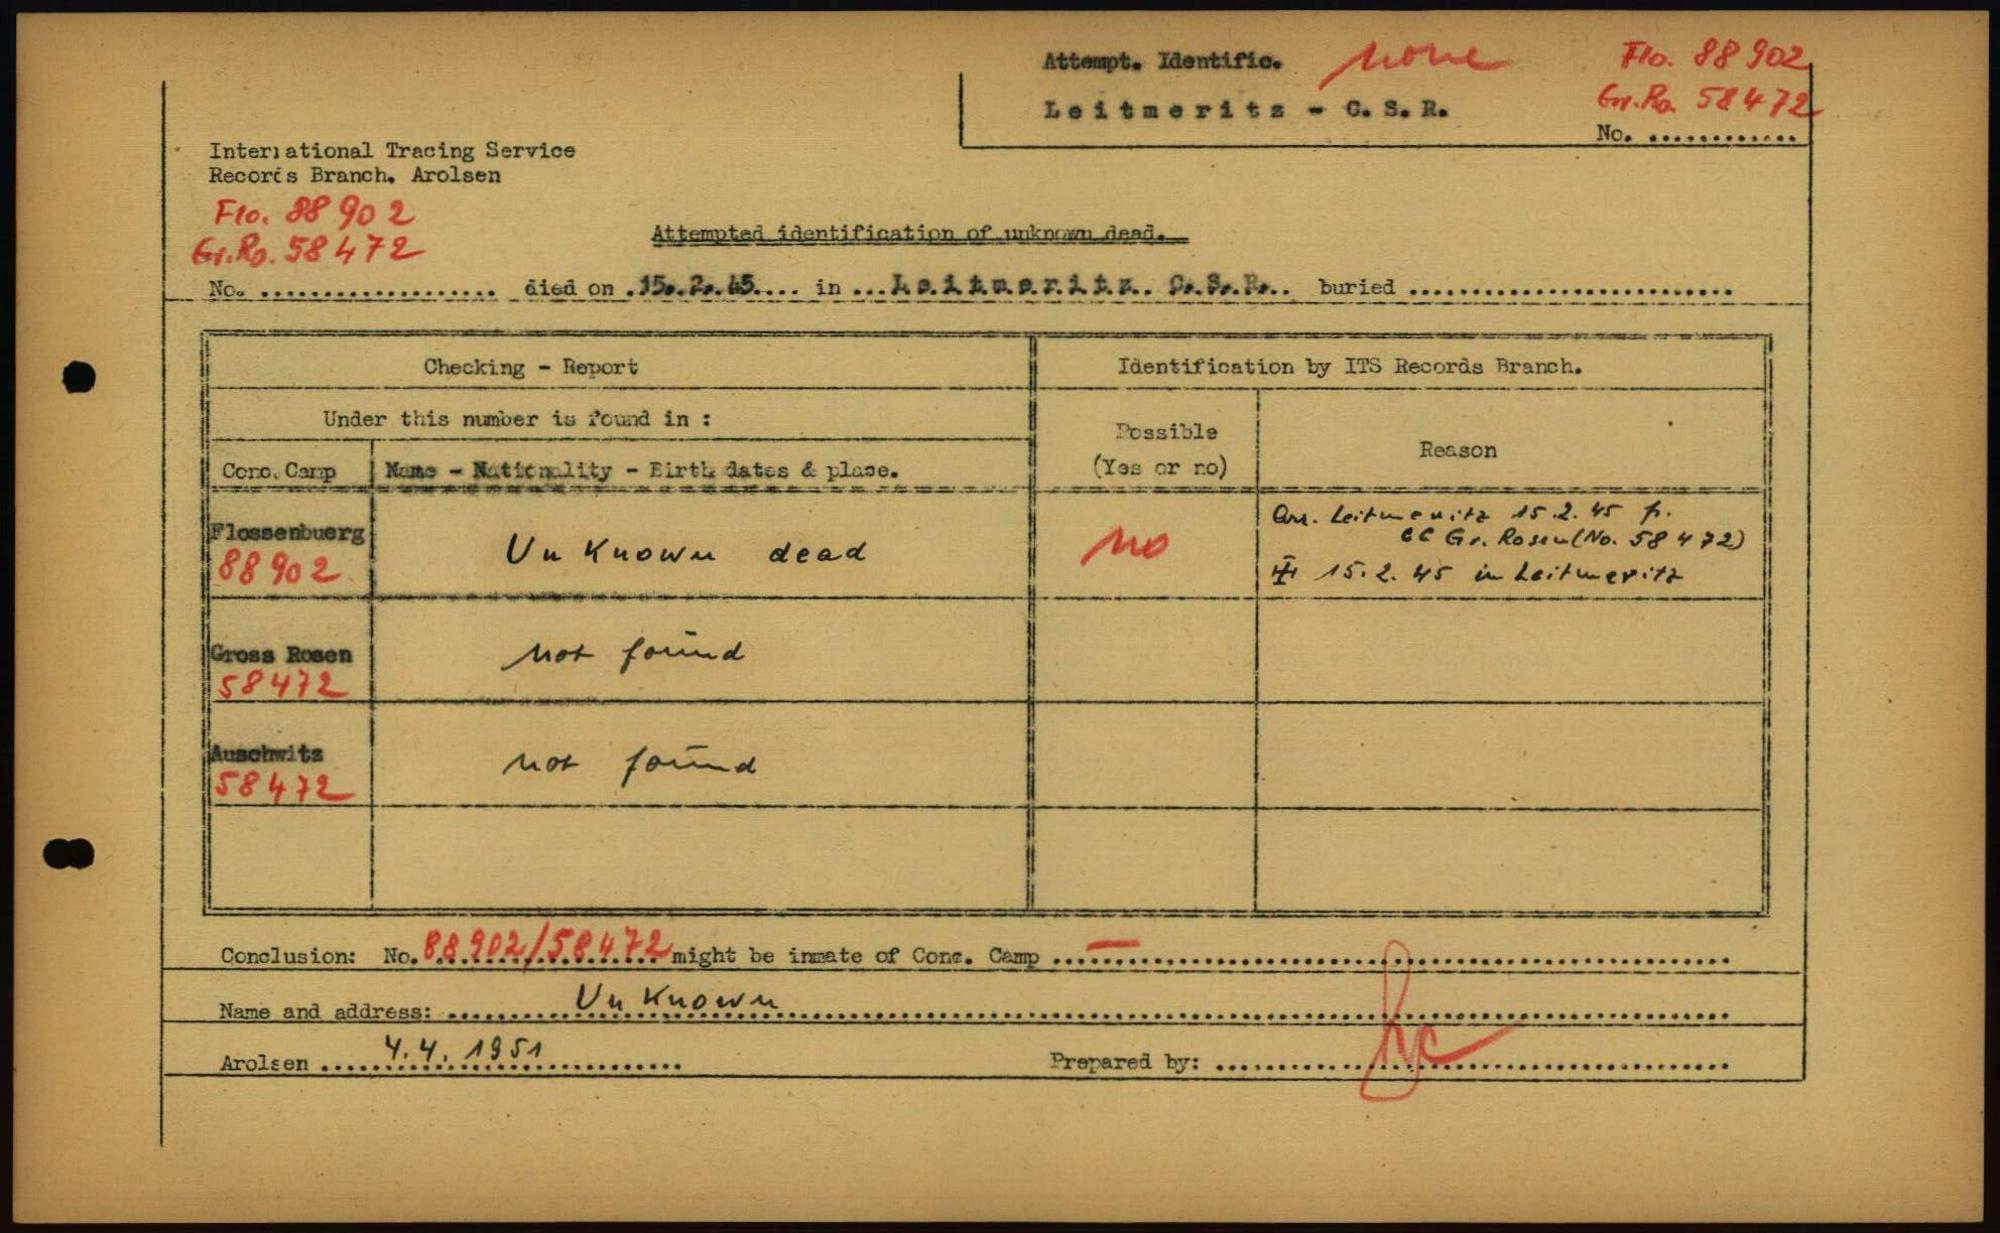 Attempt. Identific. none Flo. 88902
Leitmeritz - C. S. R. Gr.Ro. 58472
No. ............
International Tracing Service
Records Branch. Arolsen
Flo. 88902
Gr.Ro. 58472
Attempted identification of unknown dead.
No. ................... died on .15..2..45.... in ...Leitmeritz.. C.S.R.. buried ..........................
Checking - Report Identification by ITS Records Branch.
Under this number is found in :
Conc. Camp Name - Nationality - Birth dates & place. Possible (Yes or no) Reason
Flossenbuerg Unknown dead no Arr. Leitmeritz 15.2.45 fr.
88902 CC Gr. Rosen (No. 58472)
15.2.45 in Leitmeritz
Gross Rosen not found
58472
Auschwitz not found
58472
Conclusion: No. 88902/58472 might be inmate of Conc. Camp — ..........................
Name and address: Unknown
Arolsen 4.4.1951 Prepared by: